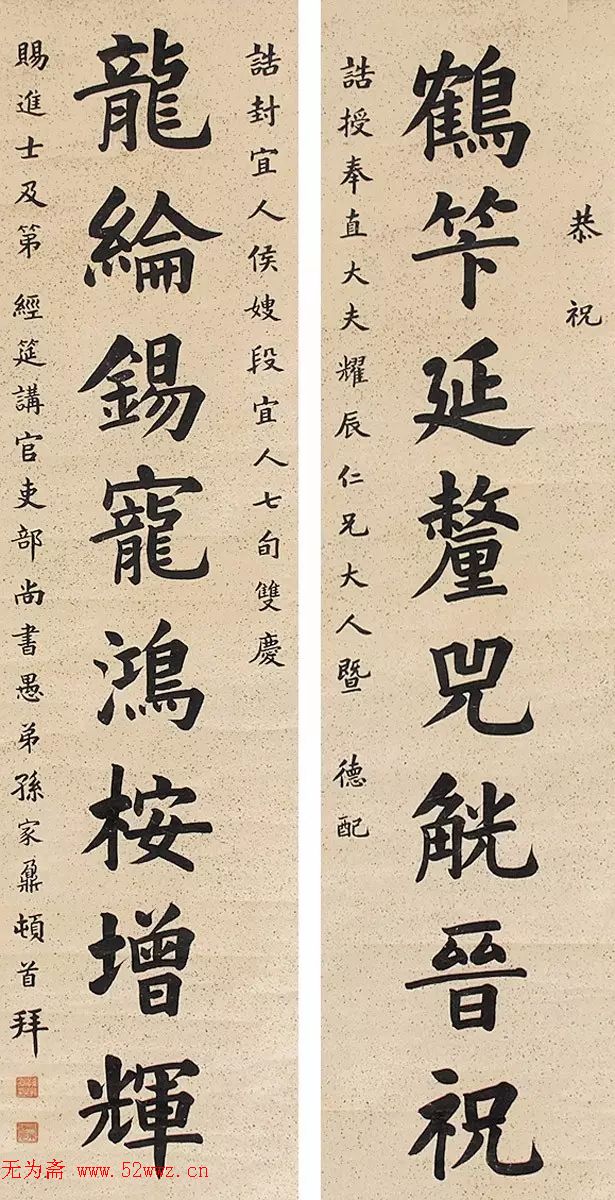 恭祝
鶴笇延釐兕觥晉祝
誥授奉直大夫耀辰仁兄大人暨 德配
誥封宜人侯嫂段宜人七旬雙慶
龍綸錫寵鴻桉增輝
賜進士及第 經筵講官吏部尚書愚弟孫家鼐頓首拜
无为斋 www.52wwz.cn